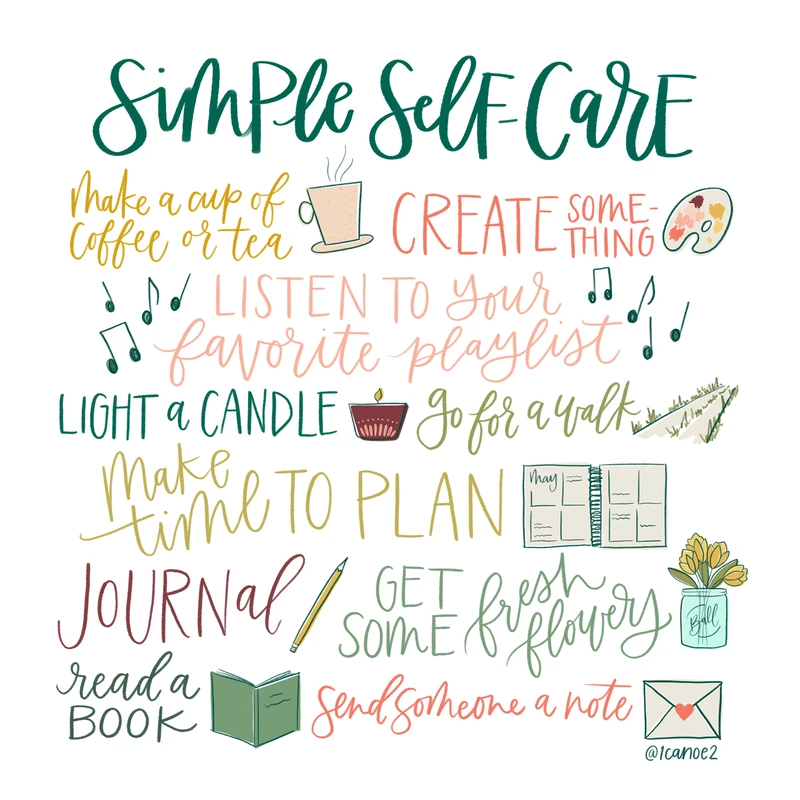 SimPle SelF-CarE
make a cup of
coffee or tea
CREATE SOME-
THING
LISTEN TO your
favorite playlist
LIGHT a CANDLE
go for a walk
make
time TO PLAN
May
JOURNal
GET
SOME
fresh
flowers
Ball
read a
BOOK
send someone a note
@1canoe2